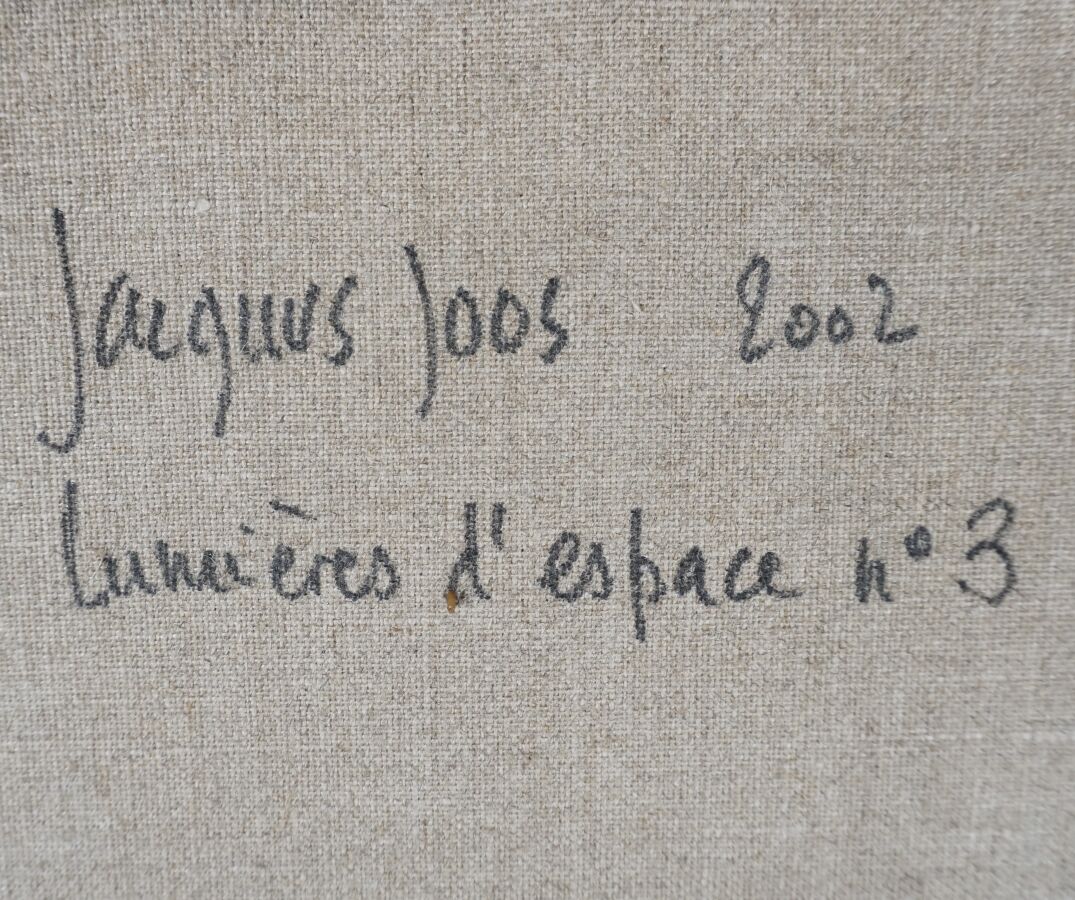 Jacques Joos 2002
Lumières d'espace n° 3